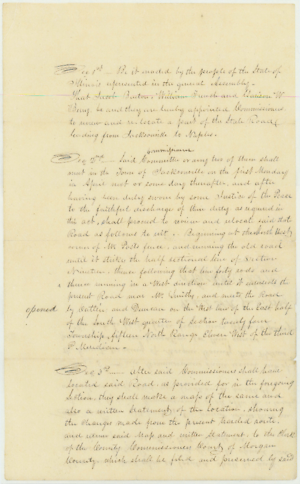 Sec 1st — Be it enacted by the people of the State of
Illinois represented in the general Assembly
That Jacob Burton William French and
Bray be and they are hereby appointed Commissioners
to view and relocate a part of the State Road
leading from Jacksonville to Naples.
Commissioners
Sec 2d — Said Committee or any two of them shall
meet in the Town of Jacksonville on the first Monday
in April next or some day thereafter, and after
having been duly sworn by some Justice of the Peace
to the faithful discharge of their duty assigned in
the act, shall proceed to view and relocate said state
Road as follows to wit. Begining at the South West
corner of Mr fence, and running the old road
until it strikes the half sectional line of section
Nineteen, thence following that line forty rods and
thence running in a West direction until it intersects the
present Road near Mr Smiths, and until the Road
opened
by and Duncan on the West line of the East half
of the South West quarter of Section twenty four
Township fifteen North Range Eleven West of the third
P. Meridian.
Sec 3d — After said Commissioners shall have
located said Road, as provided for in the foregoing
Section, they shall make a map of the same and
also a written Statement of the location, showing
the changes made from the present traveled route,
and return said Map and written Statement, to the Clerk
of the County Commissioners County of Morgan
County which shall be filed and preserved by said